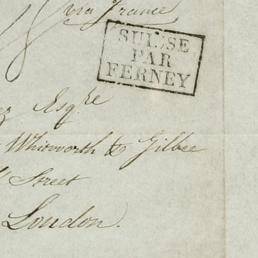 via France
SUISSE
PAR
FERNEY
Esqre
Whitworth & Gilbee
Street
London.